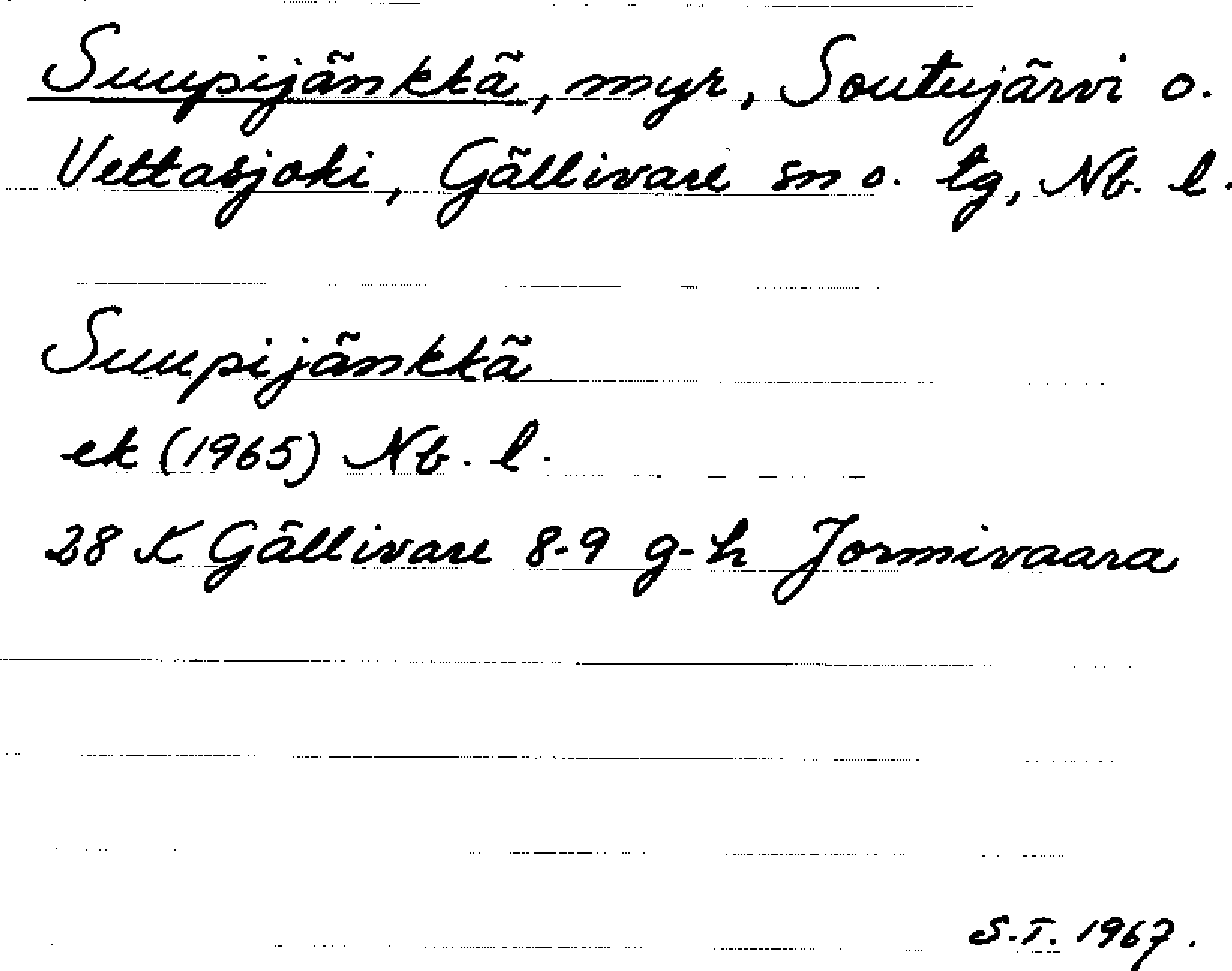 Suupijänkkä, myr, Soutujärvi o.
Vettasjoki, Gällivare sn o. tg, Nb. l.
Suupijänkkä
ek (1965) Nb. l.
28 K Gällivare 8-9 g-h Jormivaara
S.T. 1967.